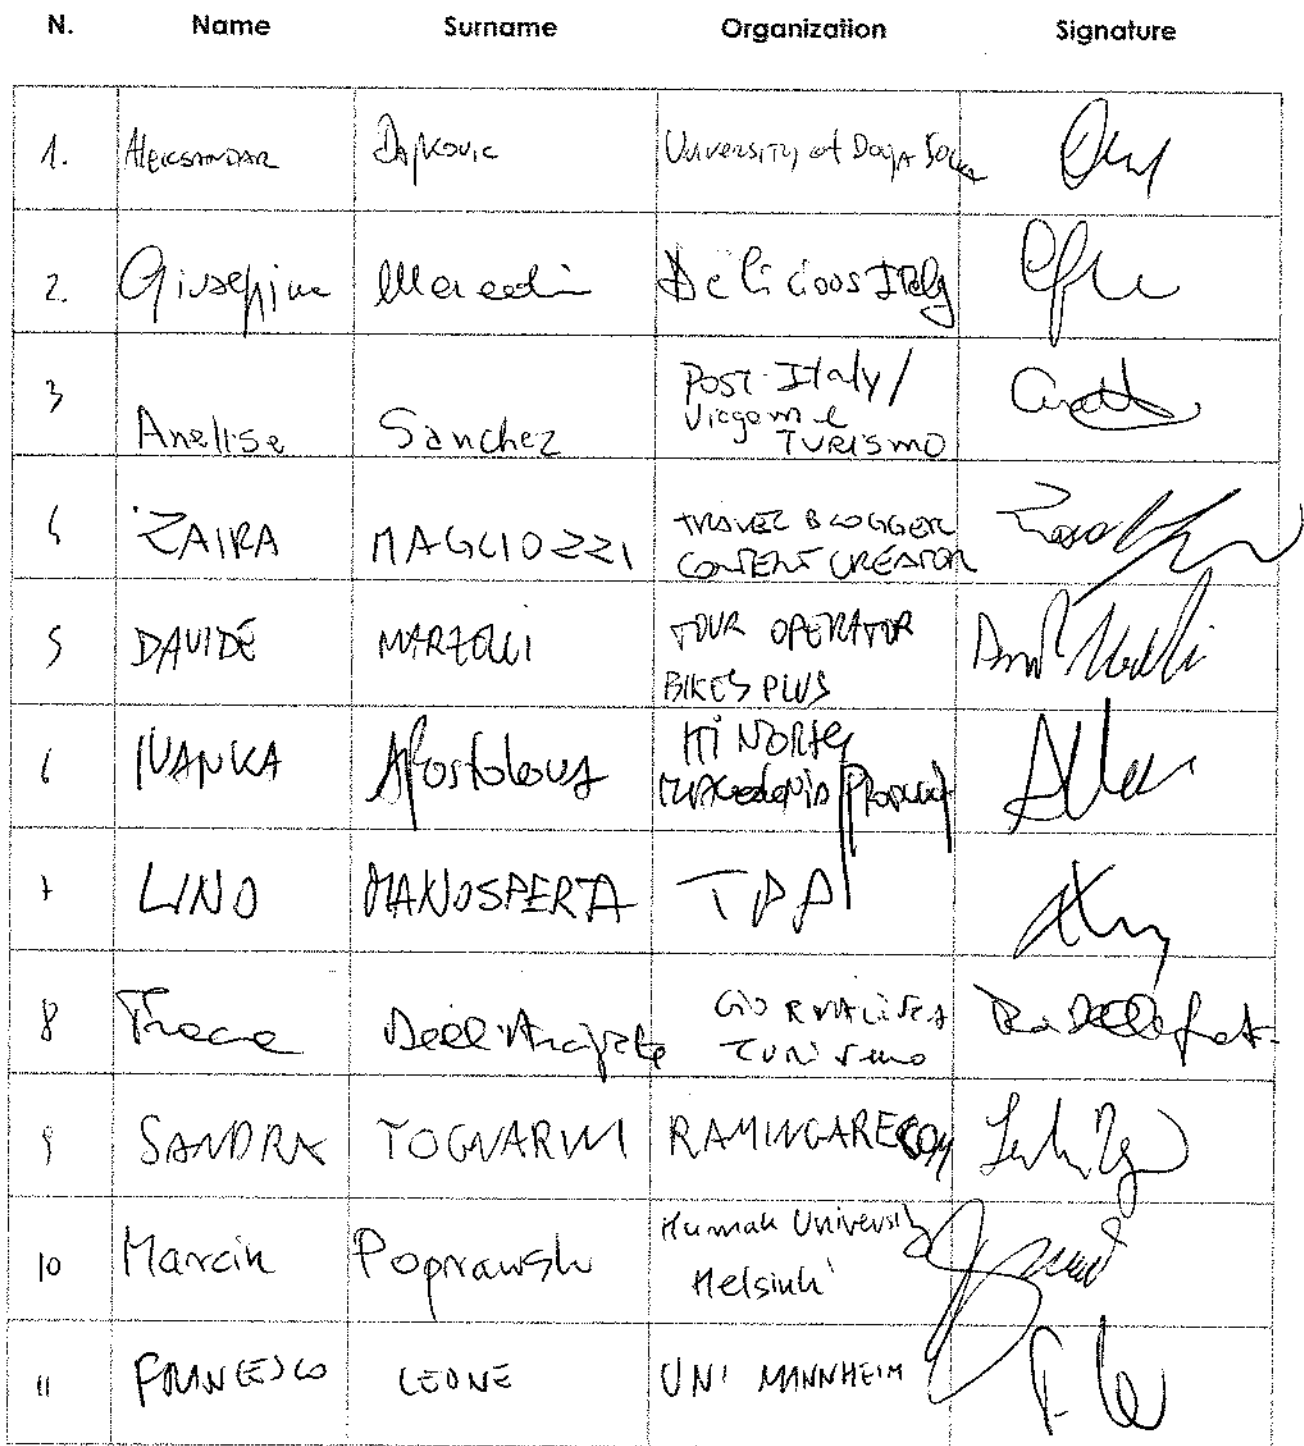 N. Name Surname Organization Signature
1. Aleksandar Dajkovic University of Donja Gorica
2. Giuseppina Delicious Italy
3 Anelise Sanchez Post-Italy/
Viagem e
TURISMO
4 ZAIRA MAGLIOZZI TRAVEL BLOGGER
CONTENT CREATOR
5 DAVIDE MARZOLLI TOUR OPERATOR
BIKES PLUS
6 IVANKA Apostolova ITI NORTH
MACEDONIA
7 LINO MANOSPERTA TPP
8 Dell'Arciprete GIORNALISTA
TURISMO
9 SANDRA TOGNARINI RAMINGARE.COM
10 Marcin Poprawski Humak University
Helsinki
11 FRANCESCO LEONE UNI MANNHEIM